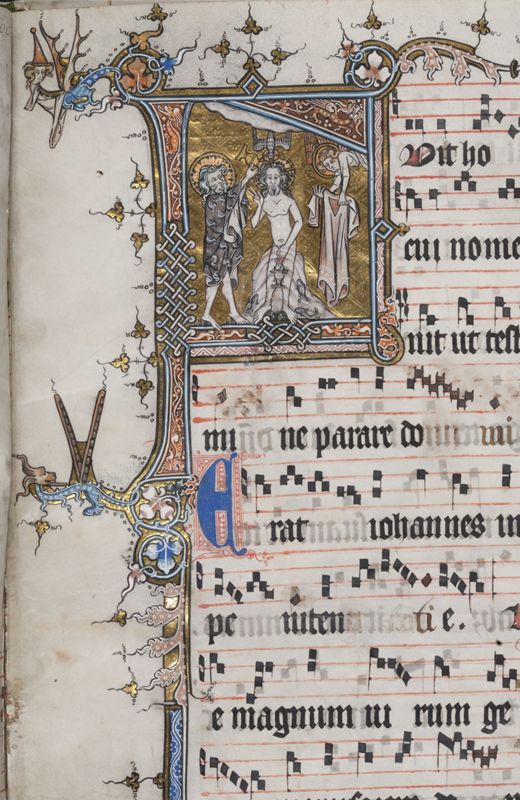 FVit ho
cui nome
nit ut test
mi ne parare do
Erat iohannes in
pe niten ti e.
e magnum ui rum ge